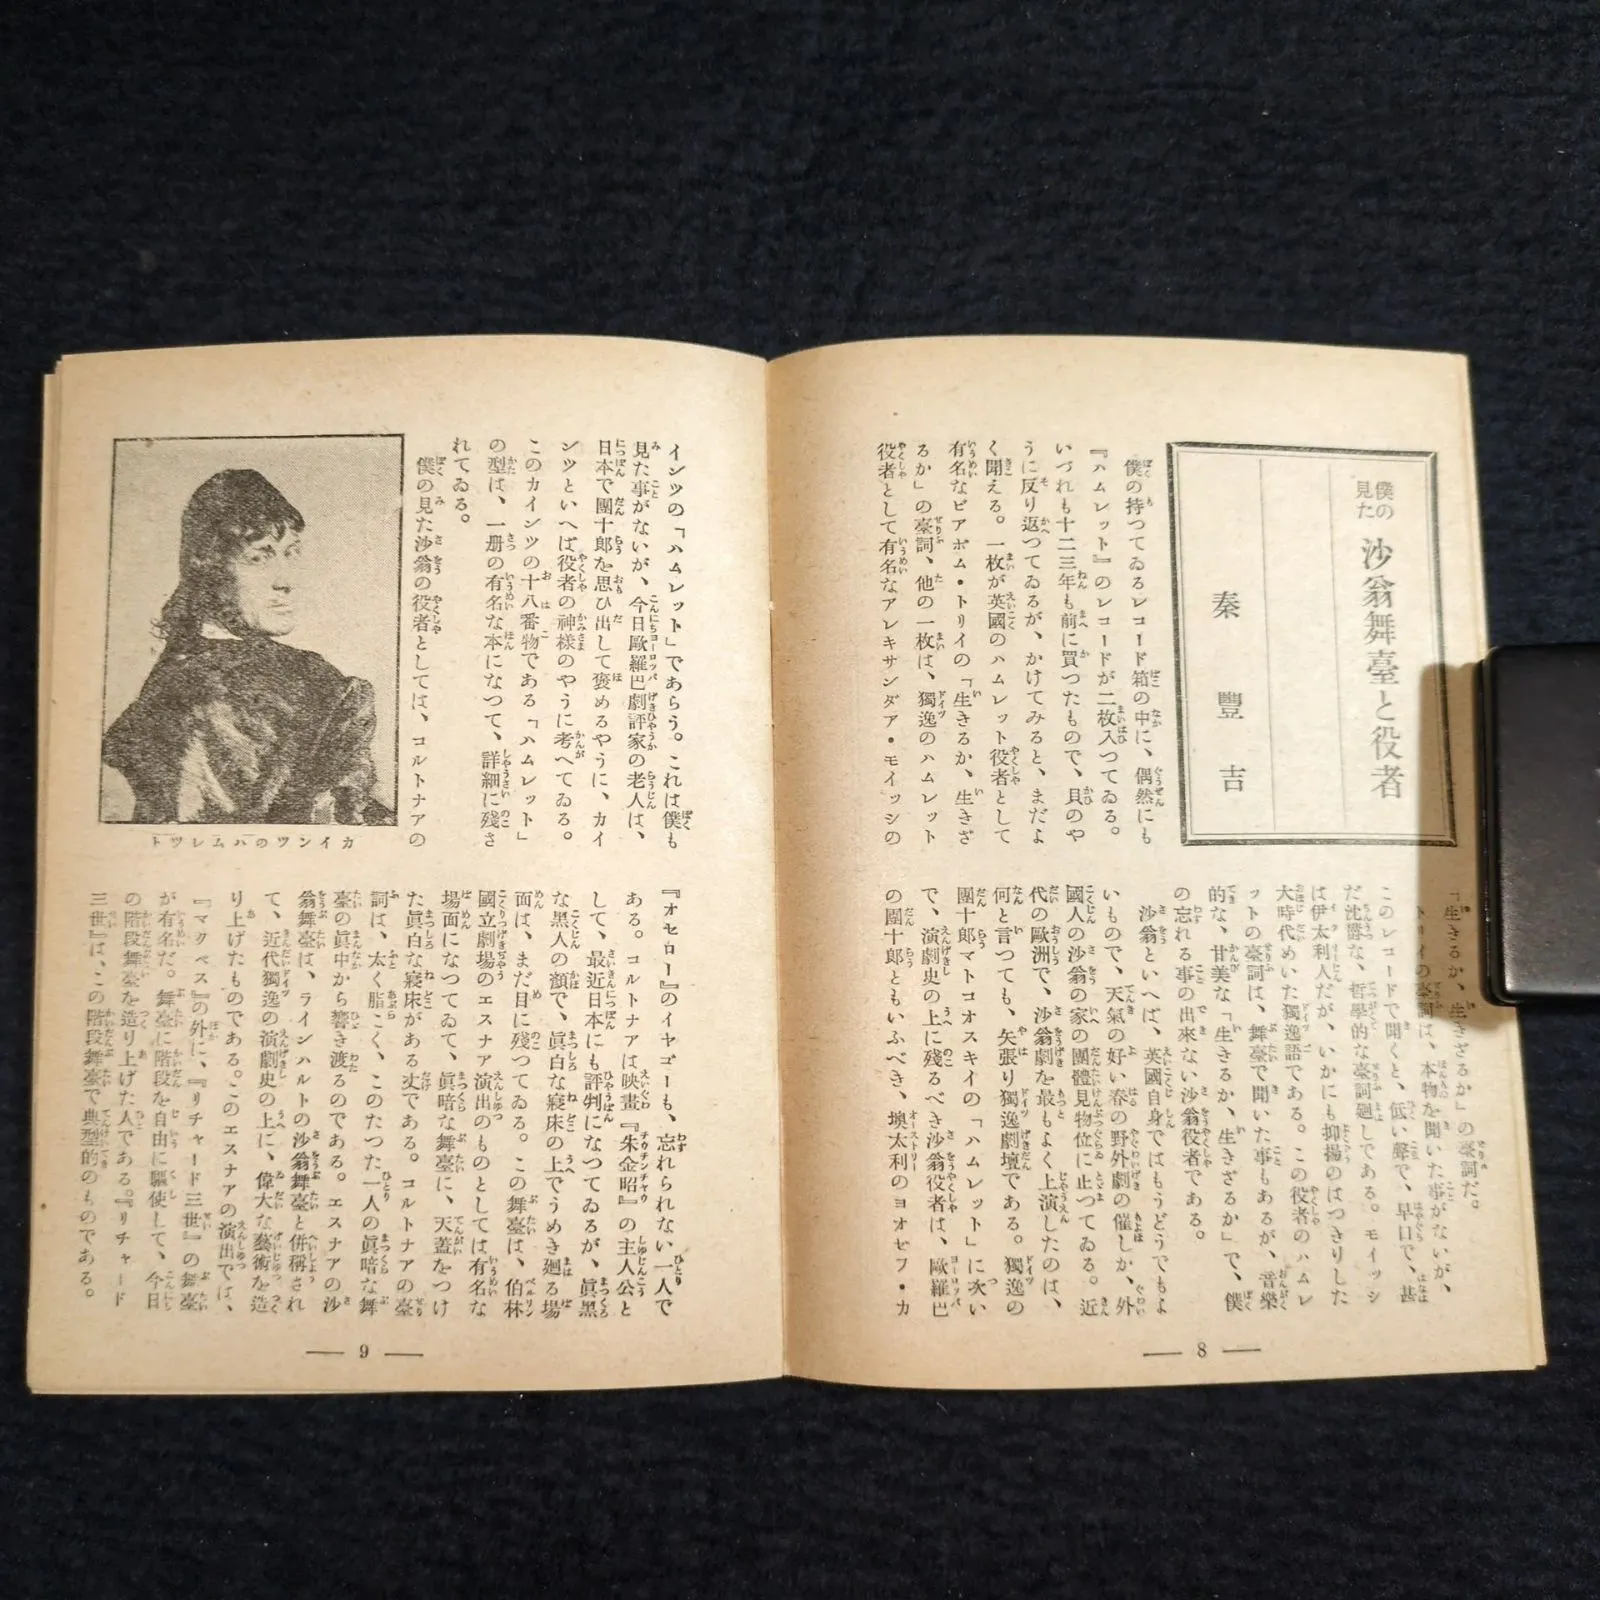 僕の見た 沙翁舞臺と役者
秦豐吉
僕の持つてゐるレコード箱の中に、偶然にも
『ハムレット』のレコードが二枚入つてゐる。
いづれも十二三年も前に買つたもので、貝のや
うに反り返つてゐるが、かけてみると、まだよ
く聞える。一枚が英國のハムレット役者として
有名なビアボム・トリイの「生きるか、生きざ
るか」の臺詞、他の一枚は、獨逸のハムレット
役者として有名なアレキサンダア・モイッシの
「生きるか、生きざるか」の臺詞だ。
トリイの臺詞は、本物を聞いた事がないが、
このレコードで聞くと、低い聲で、早口で、甚
だ沈欝な、哲學的な臺詞廻しである。モイッシ
は伊太利人だが、いかにも抑揚のはつきりした
大時代めいた獨逸語である。この役者のハムレ
ットの臺詞は、舞臺で聞いた事もあるが、音樂
的な、甘美な「生きるか、生きざるか」で、僕
の忘れる事の出來ない沙翁役者である。
沙翁といへば、英國自身ではもうどうでもよ
いもので、天氣の好い春の野外劇の催しか、外
國人の沙翁の家の團體見物位に止つてゐる。近
代の歐洲で、沙翁劇を最もよく上演したのは、
何と言つても、矢張り獨逸劇壇である。獨逸の
團十郎マトコオスキイの「ハムレット」に次い
で、演劇史の上に殘るべき沙翁役者は、歐羅巴
の團十郎ともいふべき、墺太利のヨオゼフ・カ
― 8 ―
インツの「ハムレット」であらう。これは僕も
見た事がないが、今日歐羅巴劇評家の老人は、
日本で團十郎を思ひ出して褒めるやうに、カイ
ンツといへば役者の神樣のやうに考へてゐる。
このカインツの十八番物である「ハムレット」
の型は、一册の有名な本になつて、詳細に殘さ
れてゐる。
僕の見た沙翁の役者としては、コルトナアの
カインツのハムレツト
『オセロー』のイヤゴーも、忘れられない一人で
ある。コルトナアは映畫『朱金昭』の主人公と
して、最近日本にも評判になつてゐるが、眞黑
な黑人の顏で、眞白な寢床の上でうめき廻る場
面は、まだ目に殘つてゐる。この舞臺は、伯林
國立劇場のエスナア演出のものとしては有名な
場面になつてゐて、眞暗な舞臺に、天蓋をつけ
た眞白な寢床がある丈である。コルトナアの臺
詞は、太く脂こく、このたつた一人の眞暗な舞
臺の眞中から響き渡るのである。エスナアの沙
翁舞臺は、ラインハルトの沙翁舞臺と併稱され
て、近代獨逸の演劇史の上に、偉大な藝術を造
り上げたものである。このエスナアの演出では、
『マクベス』の外に、『リチャード三世』の舞臺
が有名だ。舞臺に階段を自由に驅使して、今日
の階段舞臺を造り上げた人である。『リチャード
三世』は、この階段舞臺で典型的のものである。
― 9 ―